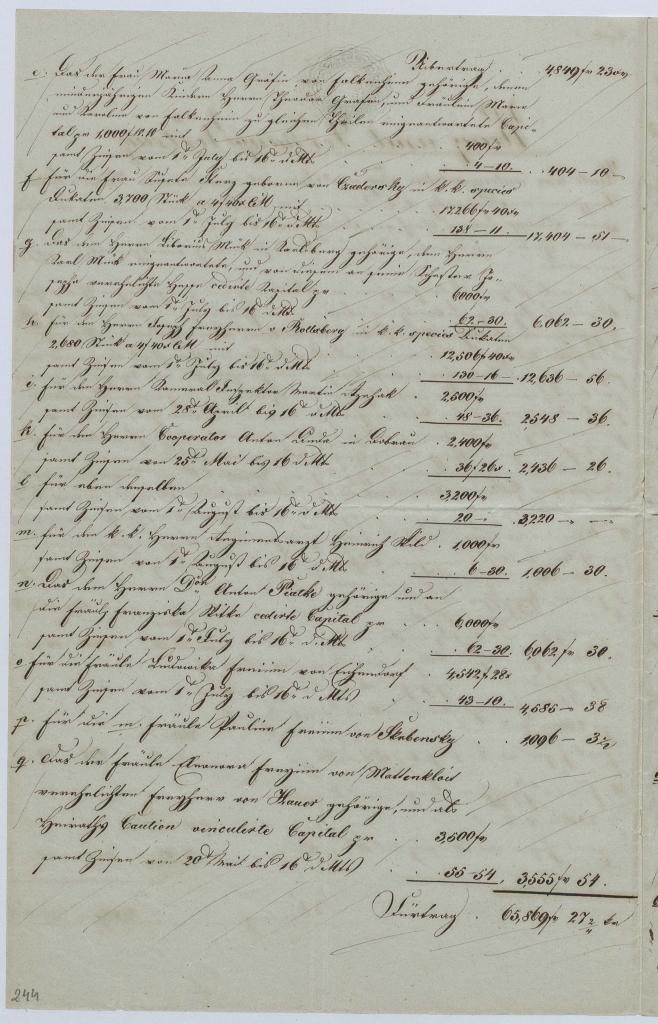 Übertrag . . 4,849 fr 23 xr
e. Das der Frau Maria Anna Gräfin von Falkenhein gehörige, denen
minderjährigen Kindern Herrn Theodor Grafen, und Fräulein Marie
und Karoline von Falkenhein zu gleichen Theilen eingeantwortete Capi-
tal pr 1,000 f mit 400 fr
samt Zinsen vom 1n July bis 16n d. Mts 4-10. 404 - 10 -
f. für die Frau Herz geborene von Czaderssky in k. k. species
Dukaten 3,700 Stück a 4 f 40 x CM mit 17266 fr 40 xr
samt Zinsen vom 1n July bis 16n d Mts 138 - 11. 17,404 - 51 -
g. das dem Herrn Mük in gehörige, dem Herrn
Karl Mük eingeantwortete, und von diesem an seine Schwester Jo-
sepha verehelichte cedirte Kapital pr 6000 fr
samt Zinsen vom 1n July bis 16n d. Mts 62-30. 6,062 - 30.
h. für den Herrn Joseph Freyherrn v in k. k. species Dukaten
2,680 Stück a 4 f 40 x CM mit 12,506 fr 40 xr
samt Zinsen vom 1n July bis 16n d Mts 130-16 - 12,636 - 56.
i. für den Herrn Kameral Inspektor Martin 2,500 fr
samt Zinsen vom 28n April bis 16n d Mts 48-36. 2548 - 36.
k. für den Herrn Cooperator Anton Linda in 2,400 fr
samt Zinsen von 25n Mai bis 16 d Mts 36 f 26 x. 2,436 - 26.
l für eben denselben 3200 fr
samt Zinsen vom 1n August bis 16n d Mts 20 - . 3220 - -
m. für den k. k. Herrn Regimentsarzt Heinrich Wild . 1,000 fr
samt Zinsen von 1n August bis 16n d Mts 6-30. 1,006 - 30.
n. Das dem Herrn Dor Anton Piatke gehörige und an
die Fräule Franziska Witke cedirte Capital pr 6,000 fr
samt Zinsen vom 1n July bis 16n d. Mts 62-30. 6,062 fr 30.
o für die Fräule Ludowika Freiinn von Eichendorf . 4,542 f 28 x
samt Zinsen vom 1n July bis 16n d Mts 43-10. 4,585 - 38
p. für die m. Fräule Pauline Freiinn von Skrbensky . . 1096 - 3½
q. das der Fräule Eleonora Freyinn von Mattenkloit
verehelichten Freyherr von Hauer gehörige, und als
Heiraths Caution vinculirte Capital pr . . 3,500 fr
samt Zinsen von 20n Mai bis 16n d Mts 55-54. 3,555 fr 54.
Fürtrag . 65,869 fr 27 2/4 xr
244